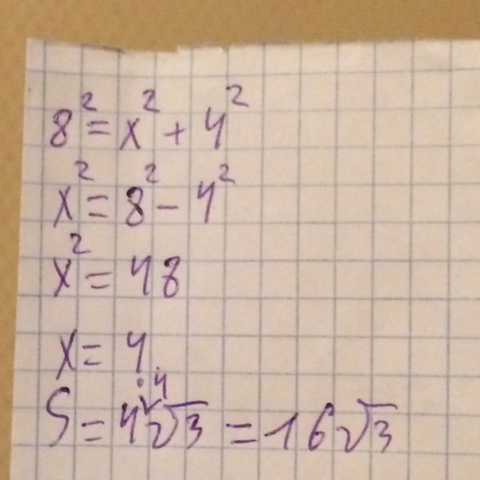 8² = x² + 4²
x² = 8² - 4²
x² = 48
x = 4
S = 4·4√3 = 16√3